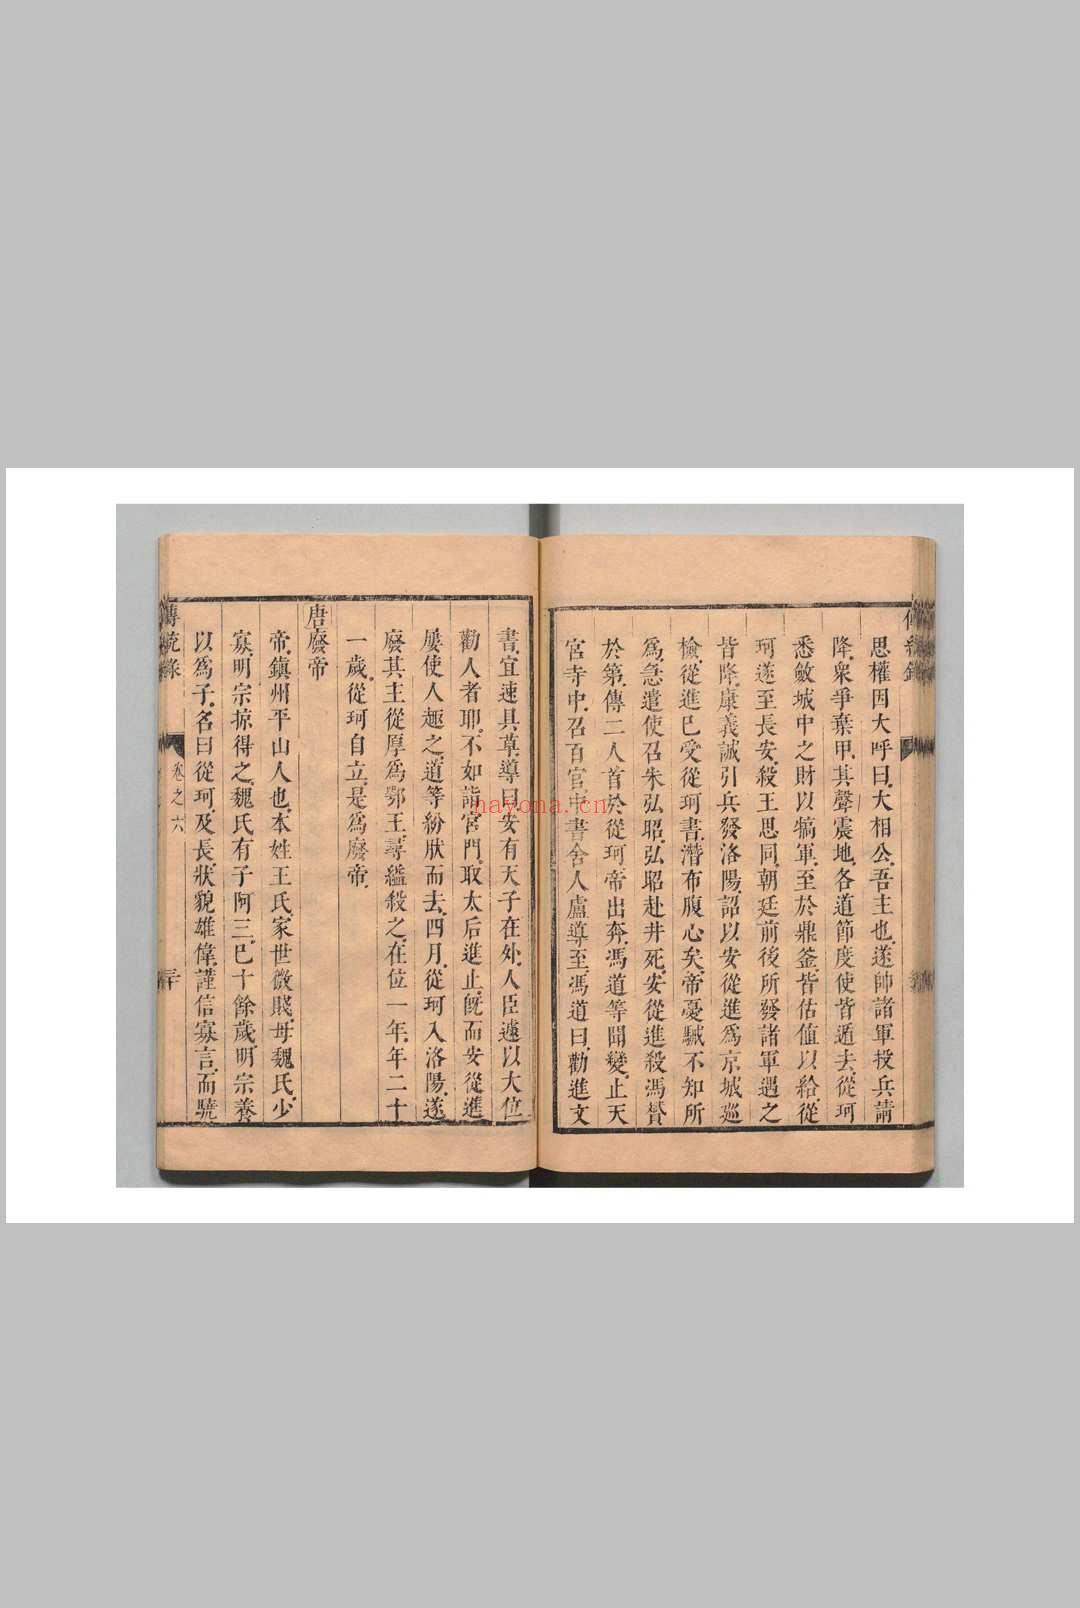 思權因大呼曰大相公吾主也遂帥諸軍投兵請
降衆爭棄甲其聲震地各道節度使皆遁去從珂
悉斂城中之財以犒軍至於鼎釜皆估值以給從
珂遂至長安殺王思同朝廷前後所發諸軍遇之
皆降康義誠引兵發洛陽詔以安從進爲京城巡
檢從進已受從珂書潛布腹心矣帝憂駴不知所
爲急遣使召朱弘昭弘昭赴井死安從進殺馮贇
於第傳二人首於從珂帝出奔馮道等聞變止天
宮寺中召百官中書舍人盧導至馮道曰勸進文
書宜速具草導曰安有天子在外人臣遽以大位
勸人者耶不如詣宮門取太后進止旣而安從進
屢使人趣之道等紛肰而去四月從珂入洛陽遂
廢其主從厚爲鄂王尋縊殺之在位一年年二十
一歲從珂自立是爲廢帝
唐廢帝
帝鎮州平山人也本姓王氏家世微賤母魏氏少
寡明宗掠得之魏氏有子阿三已十餘歲明宗養
以爲子名曰從珂及長狀貌雄偉謹信寡言而驍
卷之六
三十
hayona.cn